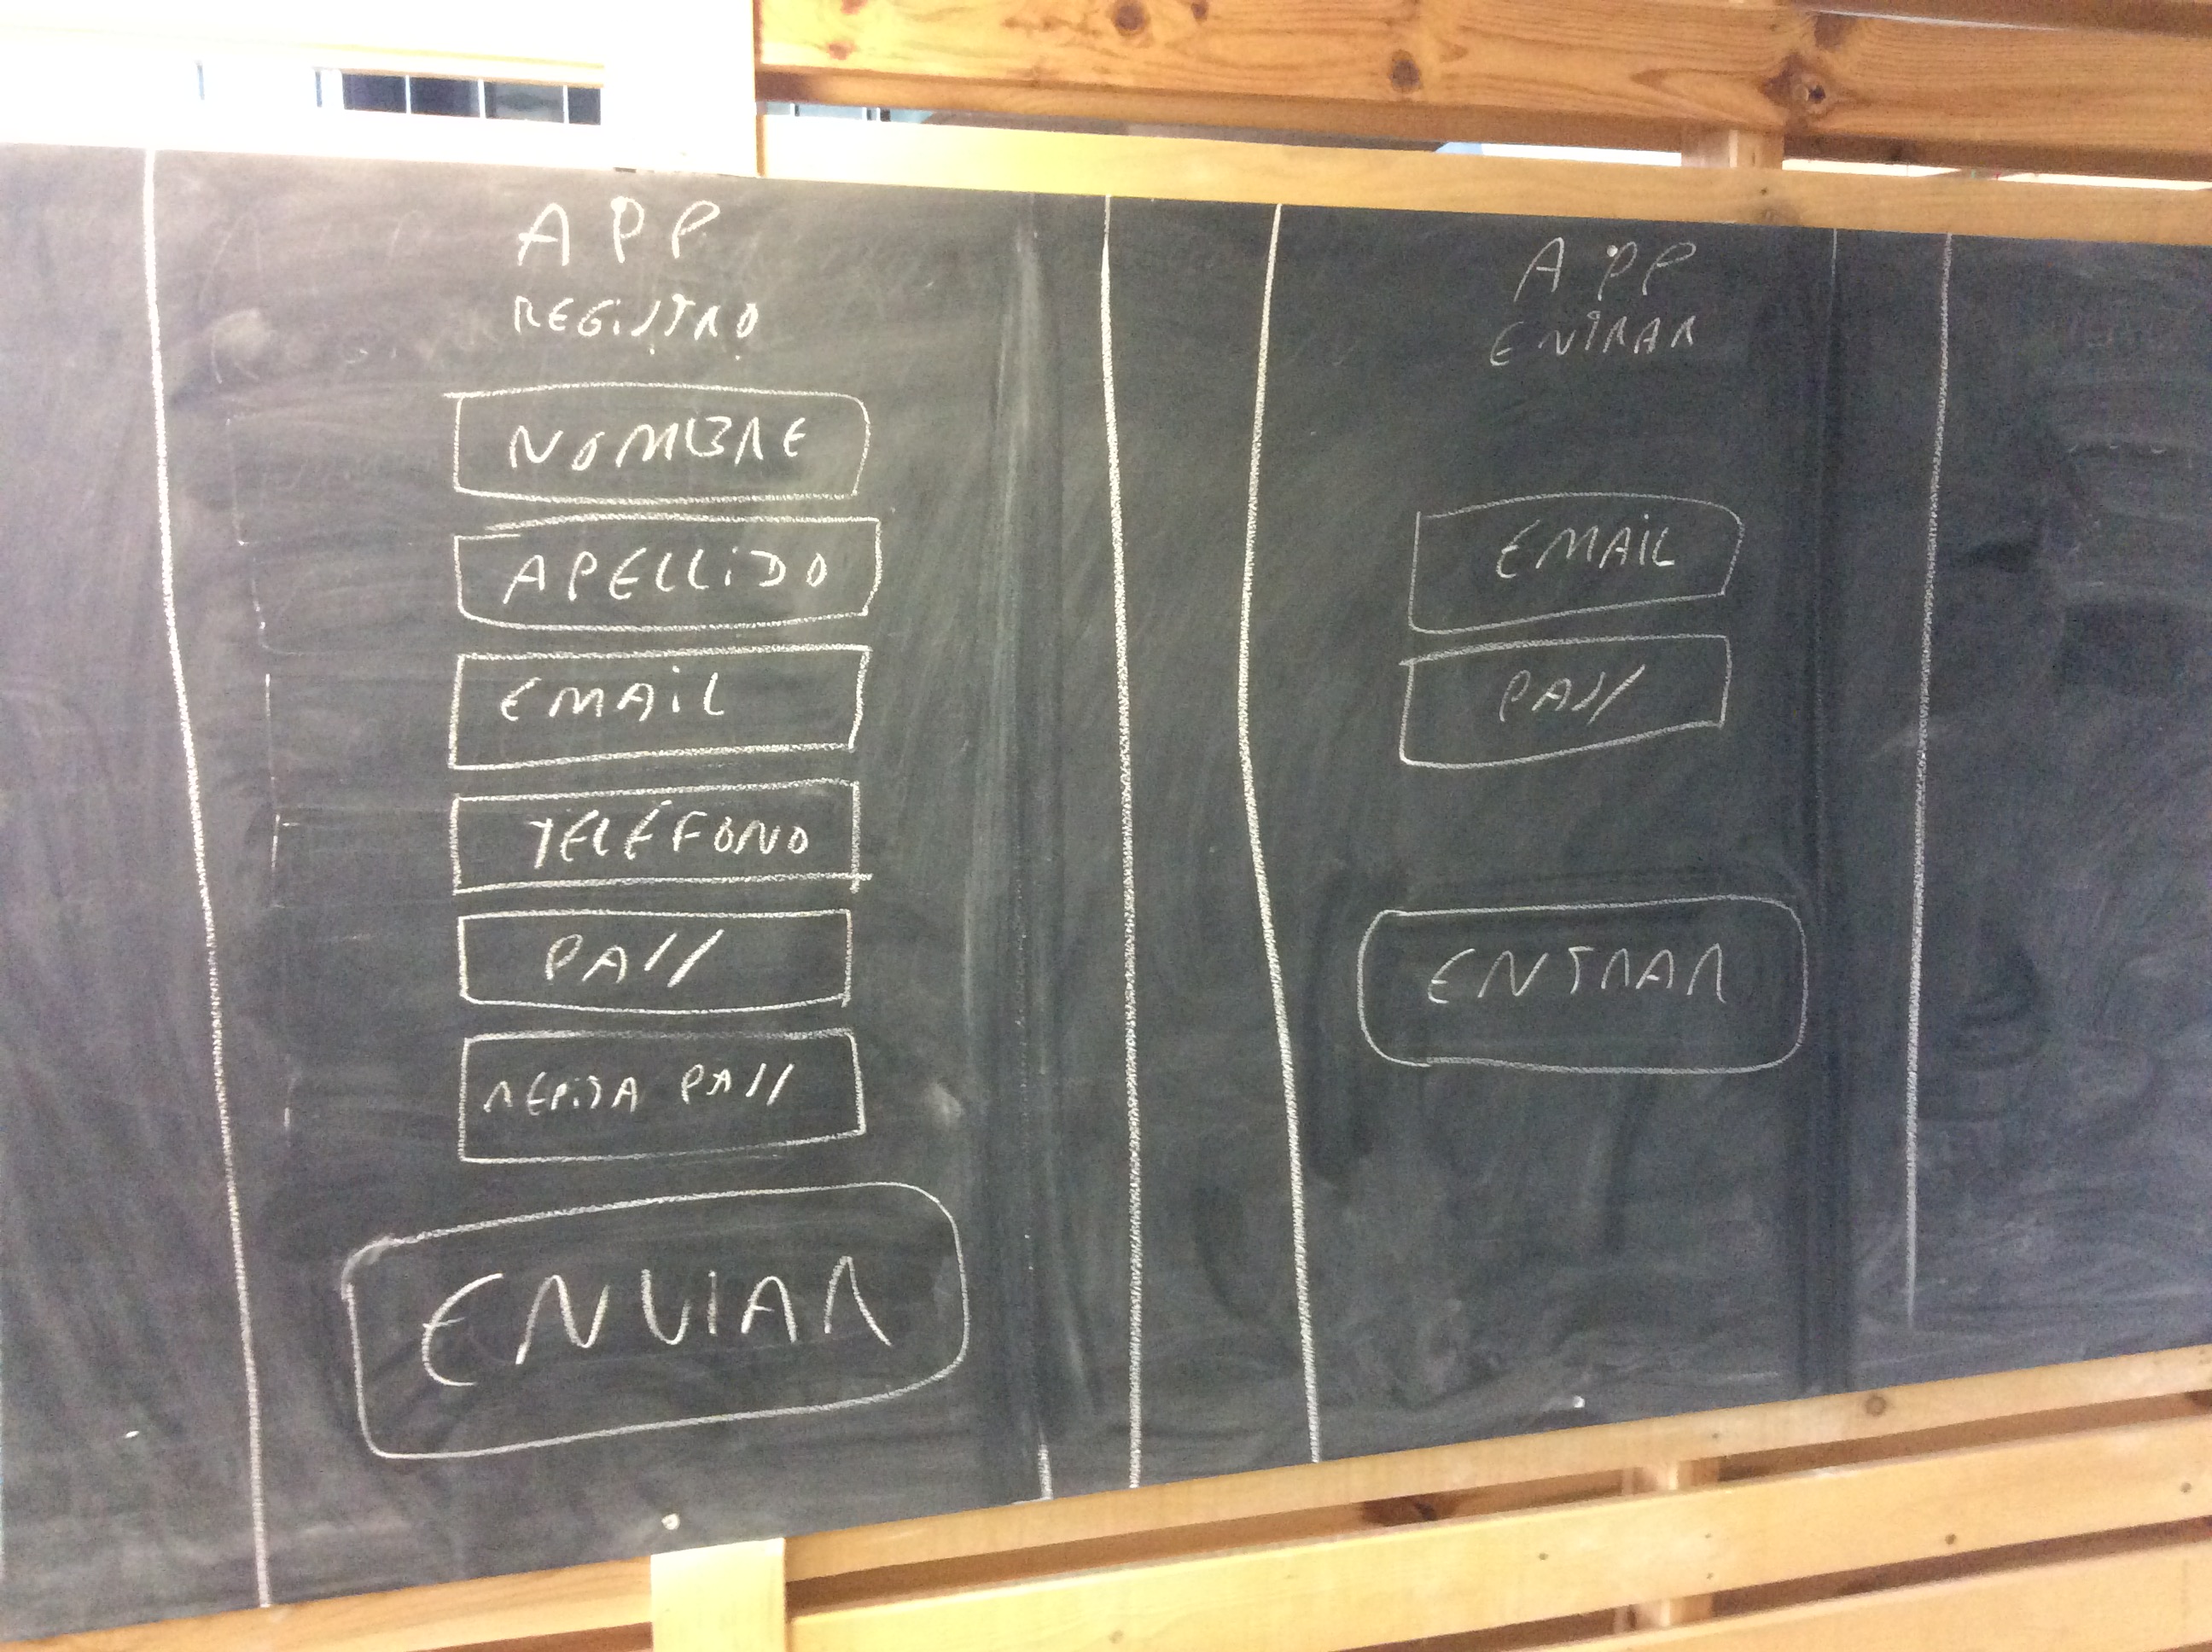 APP
REGISTRO
NOMBRE
APELLIDO
EMAIL
TELÉFONO
PASS
REPITA PASS
ENVIAR
APP
ENTRAR
EMAIL
PASS
ENTRAR